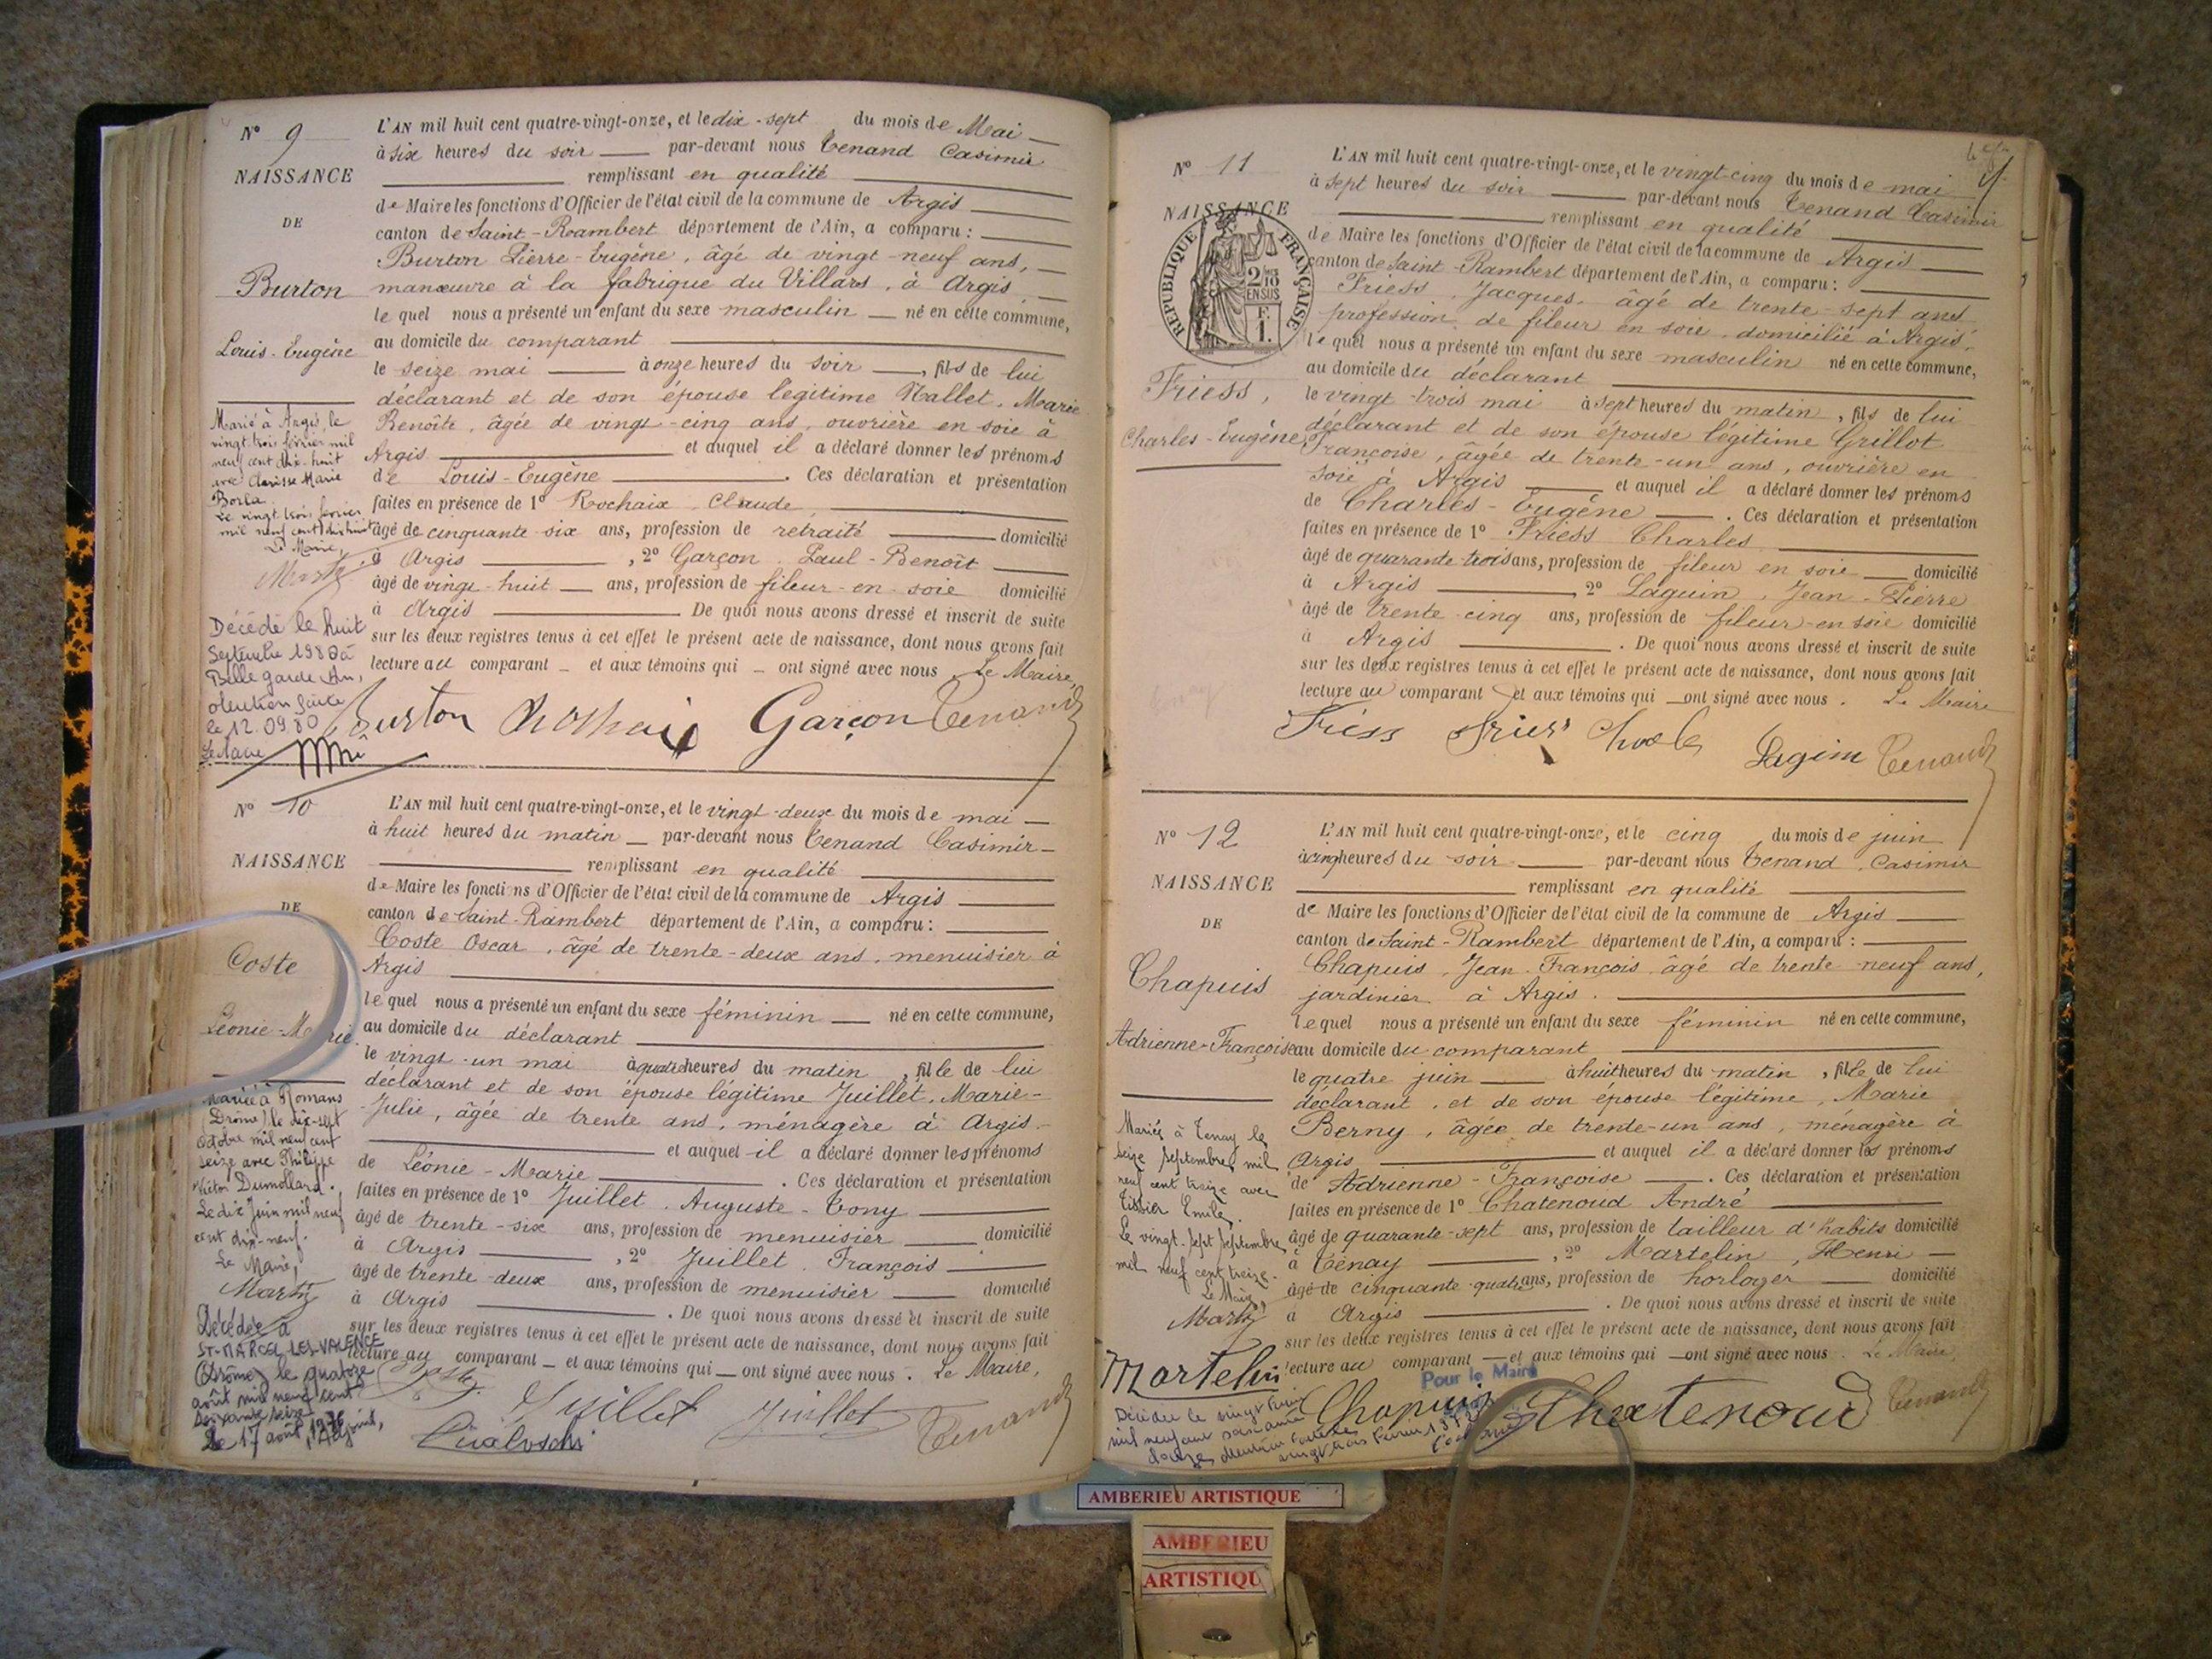 N° 9
NAISSANCE
DE
Burton
Louis-Eugène
Marié à Argis, le
vingt trois février mil
neuf cent dix-huit
avec Clarisse Marie
Borla.
Le vingt trois février
mil neuf cent dix huit
Le Maire,
L'AN mil huit cent quatre-vingt-onze, et le dix-sept du mois de Mai
à six heures du soir par-devant nous Tenand Casimir
remplissant en qualité
de Maire les fonctions d'Officier de l'état civil de la commune de Argis
canton de Saint-Rambert département de l'Ain, a comparu :
Burton Pierre-Eugène, âgé de vingt-neuf ans,
manœuvre à la fabrique du Villars, à Argis,
le quel nous a présenté un enfant du sexe masculin né en cette commune,
au domicile du comparant
le seize mai à onze heures du soir, fils de lui
déclarant et de son épouse légitime Hallet, Marie
Benoîte, âgée de vingt-cinq ans, ouvrière en soie à
Argis et auquel il a déclaré donner les prénoms
de Louis-Eugène. Ces déclaration et présentation
faites en présence de 1° Rochaix, Claude,
âgé de cinquante-six ans, profession de retraité domicilié
à Argis, 2° Garçon Paul-Benoît
âgé de vingt-huit ans, profession de fileur-en-soie domicilié
à Argis. De quoi nous avons dressé et inscrit de suite
sur les deux registres tenus à cet effet le présent acte de naissance, dont nous avons fait
lecture au comparant et aux témoins qui ont signé avec nous. Le Maire,
Décédé le huit
Septembre 1980 à
Bellegarde Ain,
le 12.09.80
Burton Rochaix Garçon Tenand
N° 10
NAISSANCE
DE
Coste
Léonie-Marie
Mariée à Romans
(Drôme) le dix-sept
Octobre mil neuf cent
seize avec Philippe
Victor Dumollard.
Le dix Juin mil neuf
cent dix-neuf.
Le Maire,
Martin
Décédée à
ST-MARCEL-LES-VALENCE
(Drôme) le quatorze
août mil neuf cent
soixante seize
Le 17 août 1976
l'Adjoint,
L'AN mil huit cent quatre-vingt-onze, et le vingt-deux du mois de mai
à huit heures du matin par-devant nous Tenand Casimir
remplissant en qualité
de Maire les fonctions d'Officier de l'état civil de la commune de Argis
canton de Saint-Rambert département de l'Ain, a comparu :
Coste Oscar, âgé de trente-deux ans, menuisier à
Argis
le quel nous a présenté un enfant du sexe féminin né en cette commune,
au domicile du déclarant
le vingt-un mai à quatre heures du matin, fille de lui
déclarant et de son épouse légitime Juillet, Marie-
Julie, âgée de trente ans, ménagère à Argis
et auquel il a déclaré donner les prénoms
de Léonie-Marie. Ces déclaration et présentation
faites en présence de 1° Juillet, Auguste-Tony
âgé de trente-six ans, profession de menuisier domicilié
à Argis, 2° Juillet, François
âgé de trente-deux ans, profession de menuisier domicilié
à Argis. De quoi nous avons dressé et inscrit de suite
sur les deux registres tenus à cet effet le présent acte de naissance, dont nous avons fait
lecture au comparant et aux témoins qui ont signé avec nous. Le Maire,
Juillet Juillet Tenand
N° 11
NAISSANCE
REPUBLIQUE FRANÇAISE
2/10
EN SUS
F.
1.
Friess,
Charles-Eugène
L'AN mil huit cent quatre-vingt-onze, et le vingt-cinq du mois de mai
à sept heures du soir par-devant nous Tenand Casimir
remplissant en qualité
de Maire les fonctions d'Officier de l'état civil de la commune de Argis
canton de Saint-Rambert département de l'Ain, a comparu :
Friess, Jacques, âgé de trente-sept ans
profession de fileur en soie, domicilié à Argis,
le quel nous a présenté un enfant du sexe masculin né en cette commune,
au domicile du déclarant
le vingt-trois mai à sept heures du matin, fils de lui
déclarant et de son épouse légitime Grillot
Françoise, âgée de trente-un ans, ouvrière en
soie à Argis et auquel il a déclaré donner les prénoms
de Charles-Eugène. Ces déclaration et présentation
faites en présence de 1° Friess Charles
âgé de quarante-trois ans, profession de fileur en soie domicilié
à Argis 2° Laguin, Jean-Pierre
âgé de trente-cinq ans, profession de fileur-en-soie domicilié
à Argis. De quoi nous avons dressé et inscrit de suite
sur les deux registres tenus à cet effet le présent acte de naissance, dont nous avons fait
lecture au comparant et aux témoins qui ont signé avec nous. Le Maire
Friess Friess Charles Lagim Tenand
N° 12
NAISSANCE
DE
Chapuis
Adrienne-Françoise
Mariée à Tenay le
seize Septembre mil
neuf cent treize avec
Tissier Emile.
Le vingt-sept Septembre
mil neuf cent treize.
Le Maire,
Martin
L'AN mil huit cent quatre-vingt-onze, et le cinq du mois de juin
à cinq heures du soir par-devant nous Tenand, Casimir
remplissant en qualité
de Maire les fonctions d'Officier de l'état civil de la commune de Argis
canton de Saint-Rambert département de l'Ain, a comparu :
Chapuis, Jean-François, âgé de trente-neuf ans,
jardinier à Argis.
le quel nous a présenté un enfant du sexe féminin né en cette commune,
au domicile du comparant
le quatre juin à huit heures du matin, fille de lui
déclarant, et de son épouse légitime, Marie
Berny, âgée de trente-un ans, ménagère à
Argis et auquel il a déclaré donner les prénoms
de Adrienne-Françoise. Ces déclaration et présentation
faites en présence de 1° Chatenoud André
âgé de quarante-sept ans, profession de tailleur d'habits domicilié
à Tenay, 2° Martelin, Henri
âgé de cinquante-quatre ans, profession de horloger domicilié
à Argis. De quoi nous avons dressé et inscrit de suite
sur les deux registres tenus à cet effet le présent acte de naissance, dont nous avons fait
lecture au comparant et aux témoins qui ont signé avec nous. Le Maire,
Pour le Maire
Martelin Chapuis Chatenoud Tenand
mil neuf cent soixante
douze
AMBERIEU ARTISTIQUE
AMBERIEU
ARTISTIQU